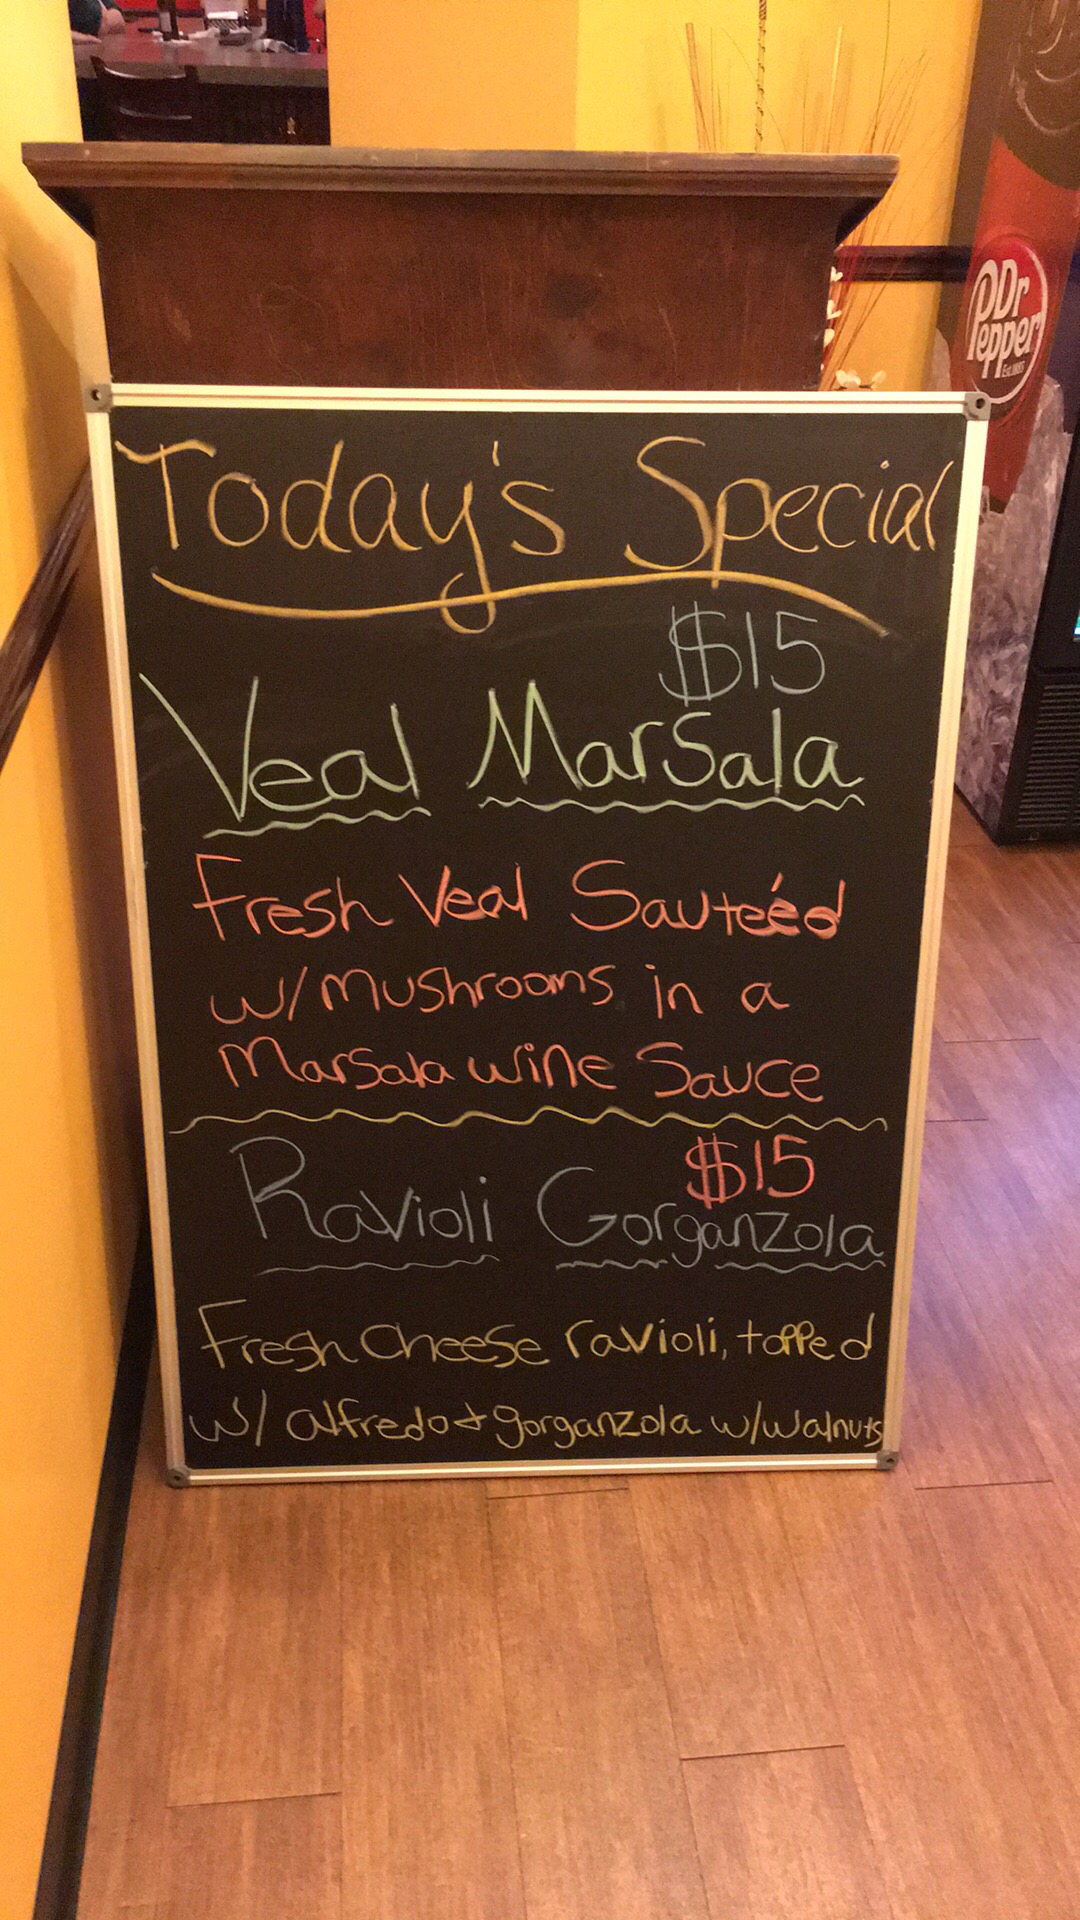 Today's Special
$15
Veal Marsala
Fresh Veal Sauteéd
w/ Mushrooms in a
Marsala wine Sauce
$15
Ravioli Gorganzola
Fresh Cheese ravioli, topped
w/ alfredo & gorganzola w/walnuts
Dr
Pepper